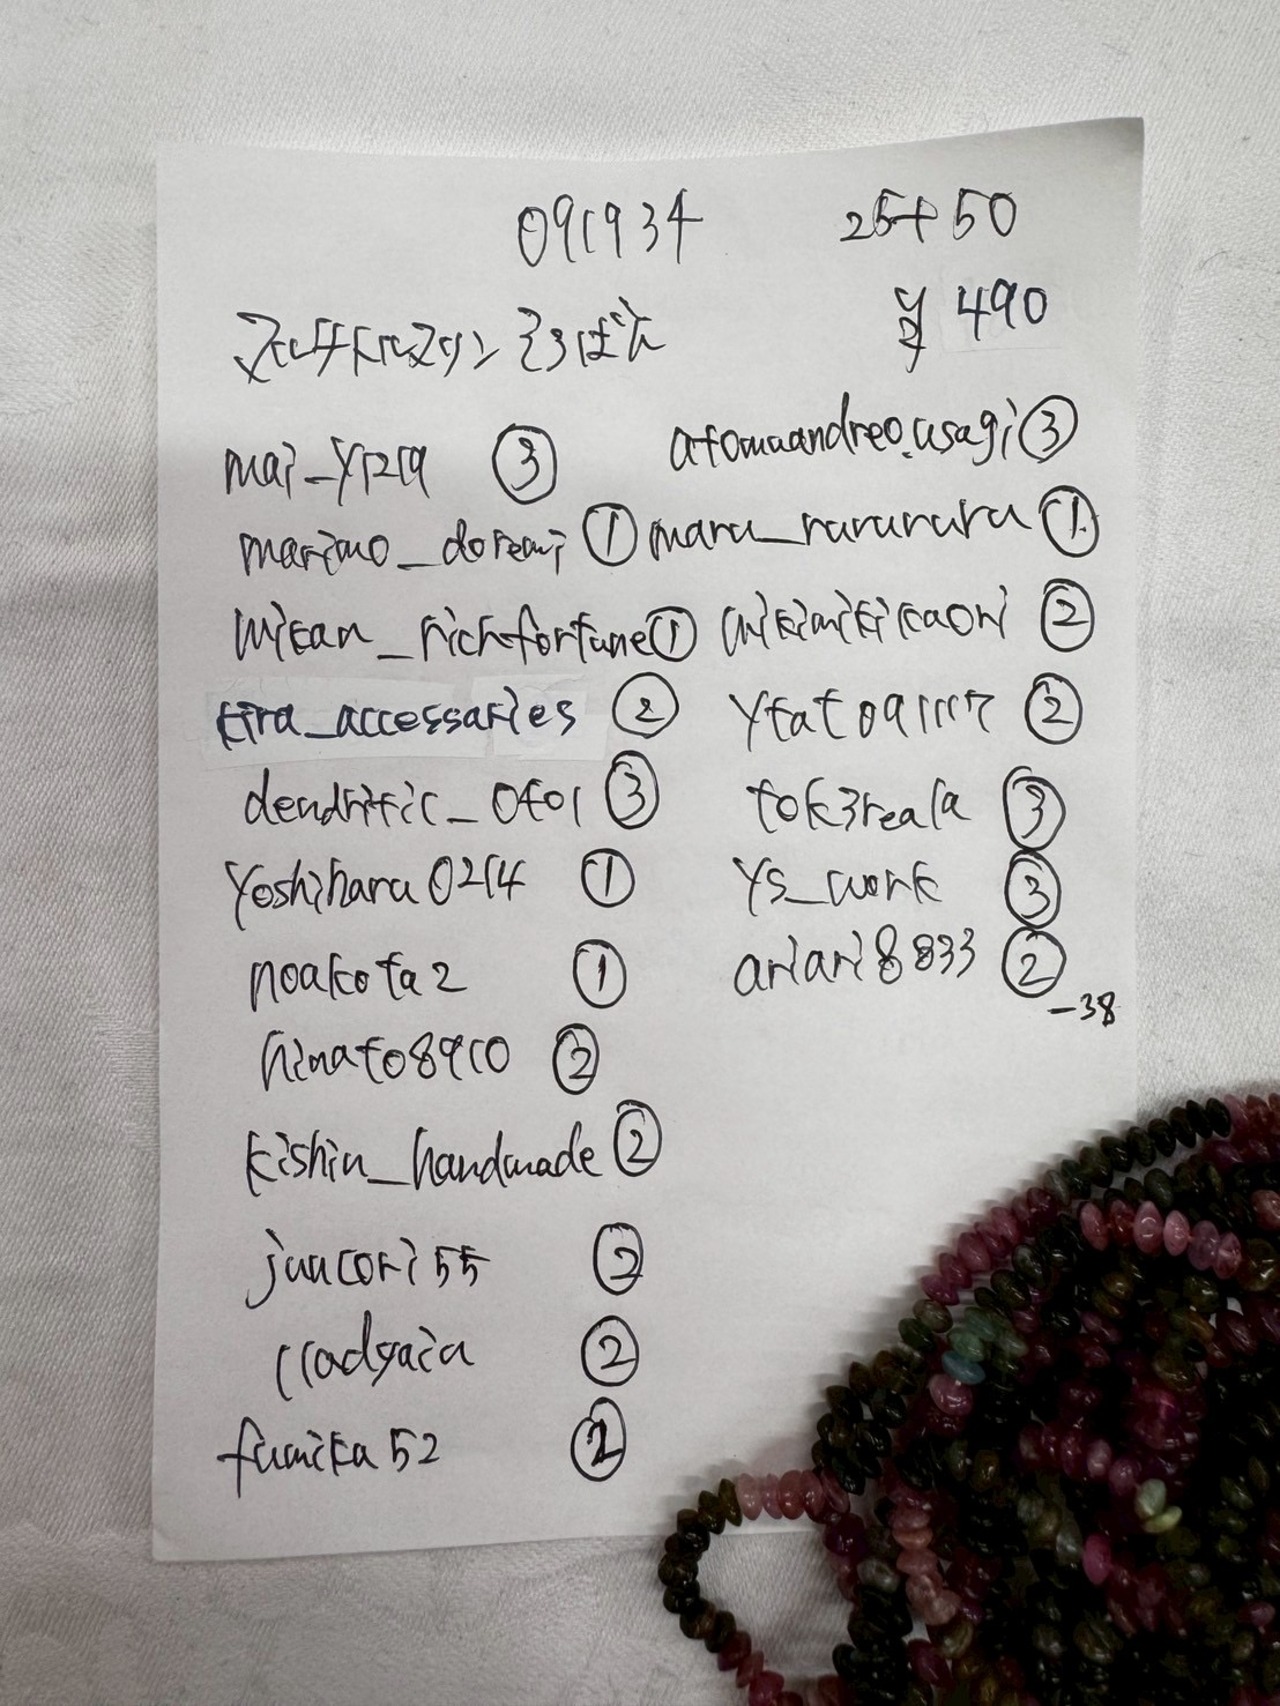 091934 25+50
マルチトルマリン そろばん ¥490
mai_y1219 ③
marimo_doremi ①
mikan_richfortune ①
kira_accessaries ②
dendritic_0401 ③
yoshiharu0214 ①
noakota2 ①
hinato8910 ②
kishin_handmade ②
juncori55 ②
fumika52 ②
atomuandreo.usagi ③
maru_rurururu ①
mikimikikaori ②
ytat091117 ②
tok3reala ③
ys_work ③
ariari8833 ②
-38